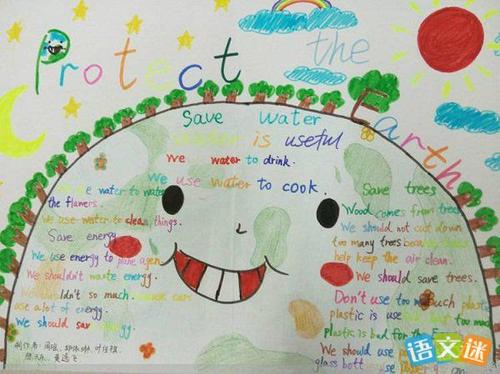 Protect the Earth
Save water
is useful
We water to drink.
We use water to cook.
water to water
the flowers.
We use water to clean things.
Save energy
We use energy to
We shouldn't waste energy.
so much.
use a lot of energy.
We should save
Save trees
Wood comes from trees
We should not cut down
too many trees
help keep the air clean.
We should save trees.
Don't use too much plastic
plastic is too much
Plastic is bad for the
We should use
glass bott
制作者:
语文迷